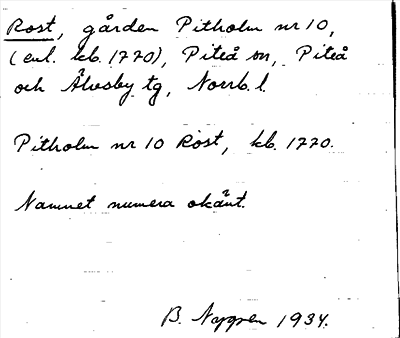 Rost, gården Pitholm nr 10,
(enl. kb. 1770), Piteå sn, Piteå
och Älvsby tg, Norrb. l.
Pitholm nr 10 Rost, kb. 1770.
Namnet numera okänt.
B. 1934.